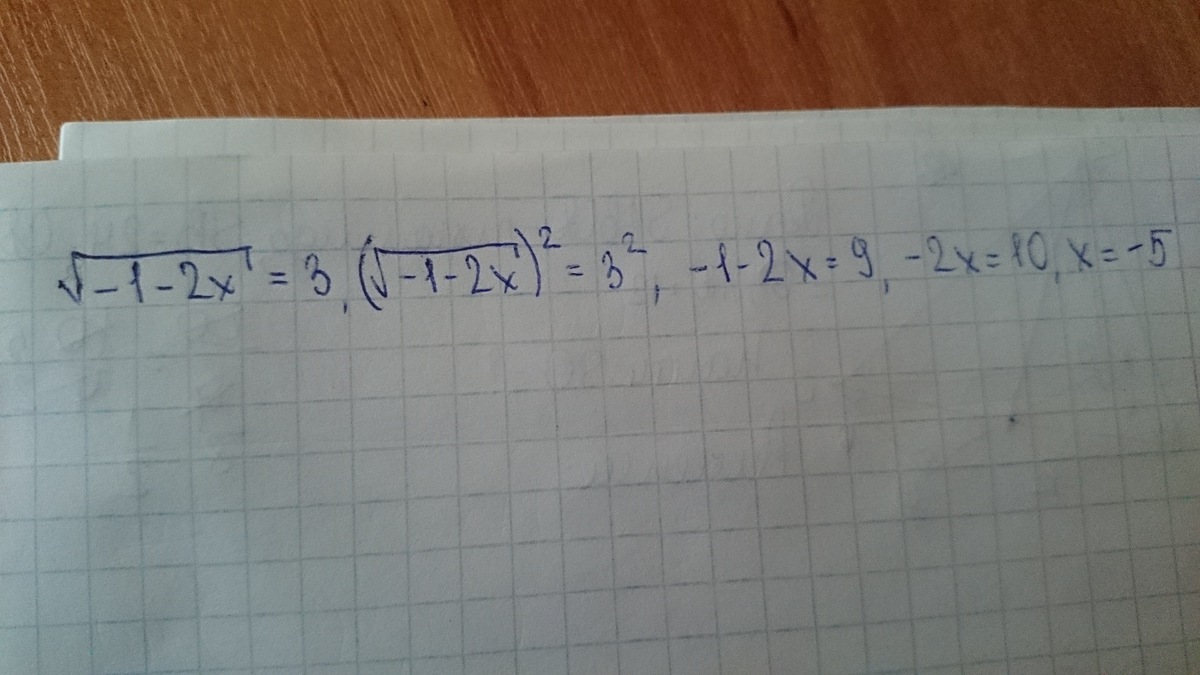 √(-1-2x) = 3, (√(-1-2x))² = 3², -1-2x=9, -2x=10, x=-5